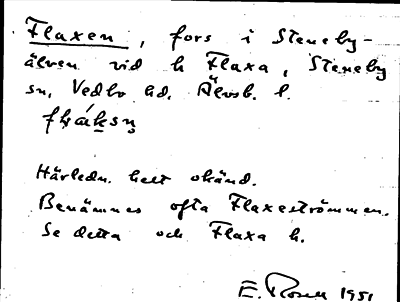 Flaxen, fors i Steneby-
älven vid h Flaxa, Steneby
sn, Vedbo hd, Älvsb. l.
Härledn. helt okänd.
Benämnes ofta Flaxeströmmen.
Se detta och Flaxa h.
E. Rosell 1951